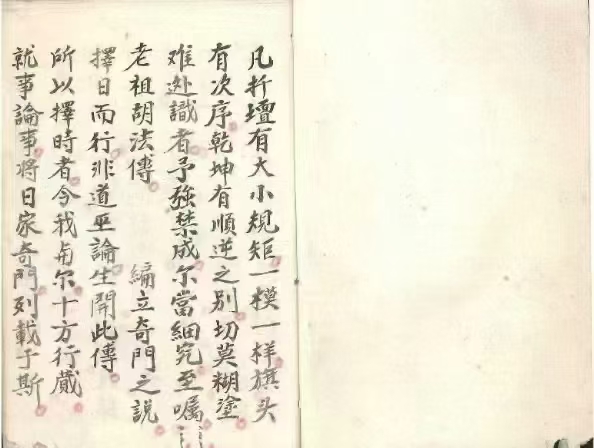 凡折壇有大小規矩一模一样旗头
有次序乾坤有順逆之别切莫糊塗
难逊識者予強禁成尔當細究至嘱
老祖胡法傳　編立奇門之說
擇日而行非道巫論生開此傳
所以擇時者今我与尔十方行藏
就事論事將日家奇門列載于斯